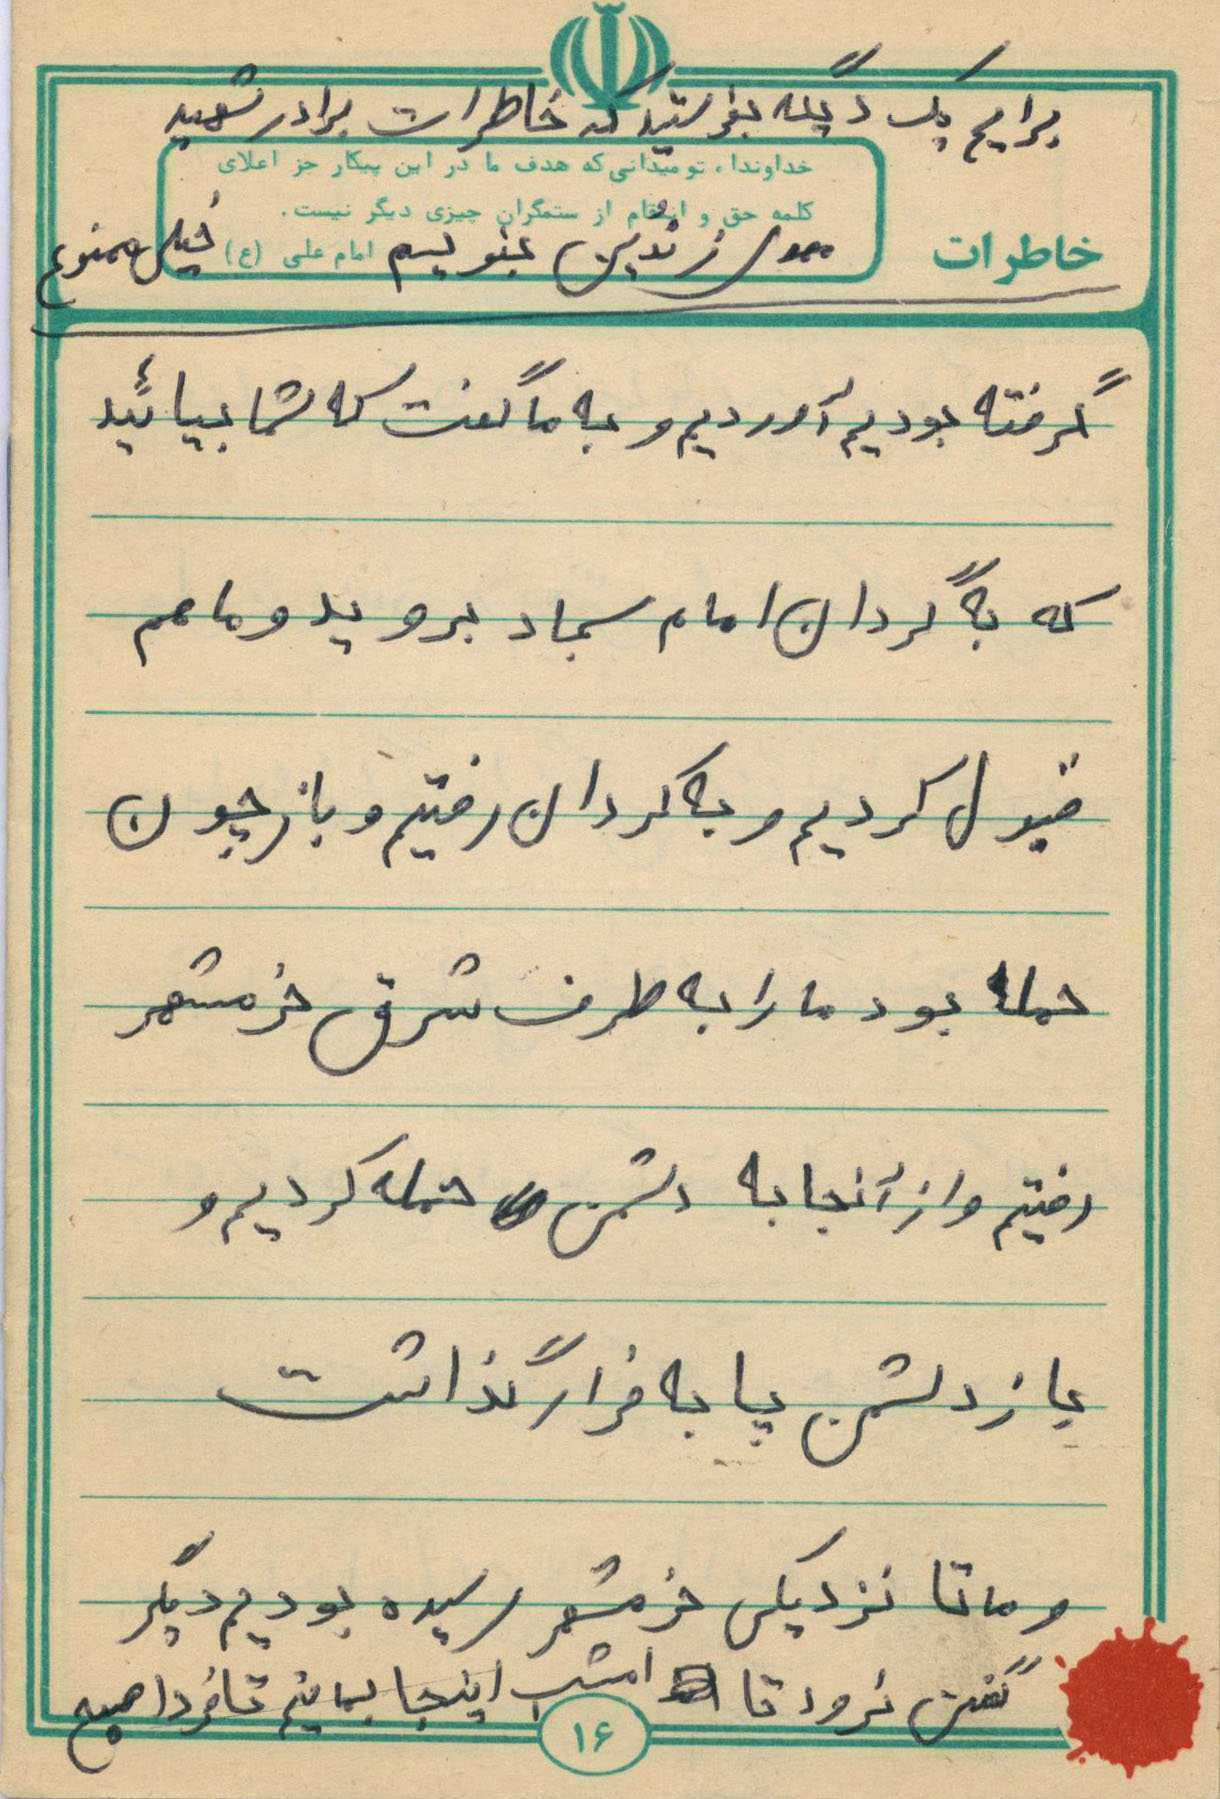 برایم یک دیگه بفرستید که خاطرات برادر شهید
خداوندا، تو میدانی که هدف ما در این پیکار جز اعلای
کلمه حق و انتقام از ستمگران چیزی دیگر نیست.
امام علی (ع)
خاطرات
بنویسم خیلی ممنون
گرفته بودیم آوردیم و به ما گفت که شما بیائید
که به گردان امام سجاد بروید و ما هم
قبول کردیم و به گردان رفتیم و باز چون
حمله بود ما را به طرف شرق خرمشهر
رفتیم و از آنجا به دشمن حمله کردیم و
باز دشمن پا به فرار گذاشت
و ما تا نزدیکی خرمشهر رسیده بودیم دیگر
گفتن نرود تا امشب اینجا بمانیم تا فردا صبح
۱۶